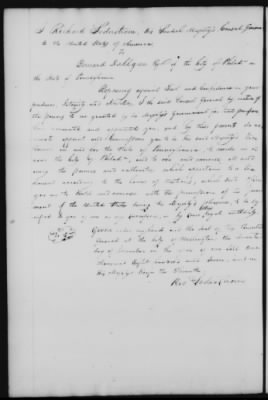 I Richard Söderström, His Swedish Majesty's Consul General
to the United States of America
To
Edward Dahlgren Esqr. of the City of Philada. in
the State of Pennsylvania
Reposing especial Trust and Confidence in your
prudence, Integrity and Abilities, I the said Consul General, by virtue of
the powers to me granted by His Majesty's Government for that purpose,
have nominated and appointed you, and by these presents do no-
minate appoint and you to be His said Majesty's Vice
Consul in and for the State of Pennsylvania, to reside in or
near the City of Philada. and to use and exercise all and
every the powers and authorities which appertain to a Vice
Consul according to the Laws of Nations, which Trust
you are to hold and exercise with the permission of the Govern-
ment of the United States during His Majesty's pleasure, to be
to you by me or my successor, or by other legal authority.
Given under my hand and the Seal of the Consulate
General at the City of Washington the
day of in the year of our Lord One
thousand Eight hundred and Seven, and in
His Majesty's Reign the
Richd. Söderström